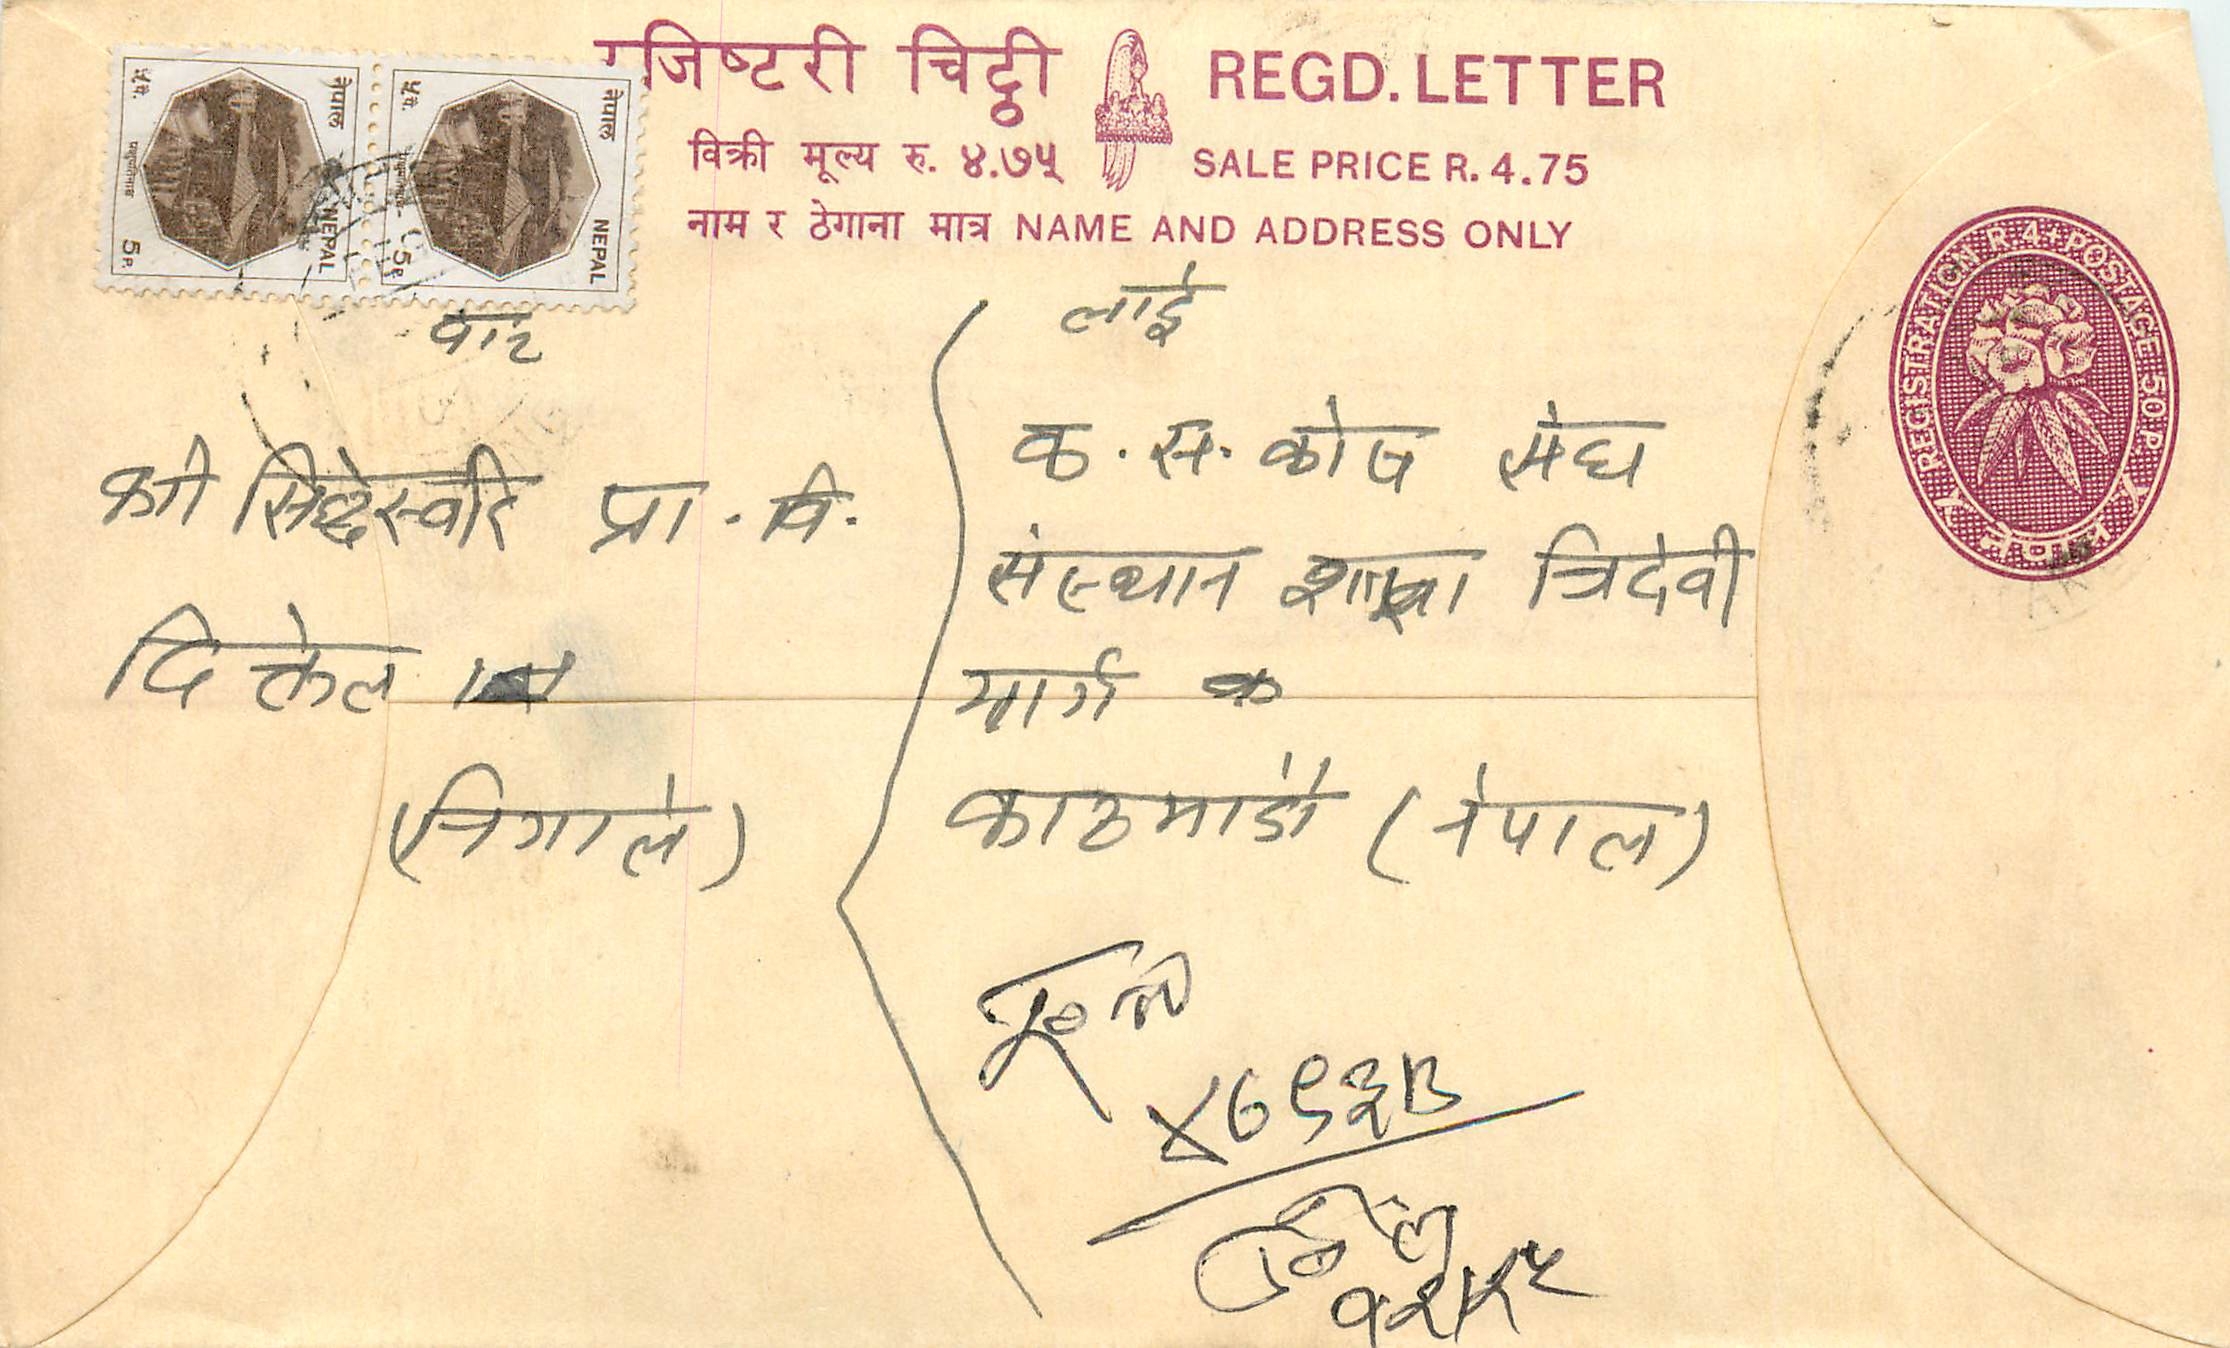 रजिष्टरी चिठ्ठी REGD. LETTER
विक्री मूल्य रु. ४.७५ SALE PRICE R. 4.75
नाम र ठेगाना मात्र NAME AND ADDRESS ONLY
नेपाल
५ पै.
NEPAL
5 P.
नेपाल
५ पै.
NEPAL
5 P.
REGISTRATION R. 4 + POSTAGE 50 P.
नेपाल
लाई
क. स. कोष संघ
संस्थान शाखा त्रिदेवी
मार्ग
काठमाडौं (नेपाल)
श्री सिद्धेस्वरि प्रा. वि.
दिक्तेल
(निगाले)